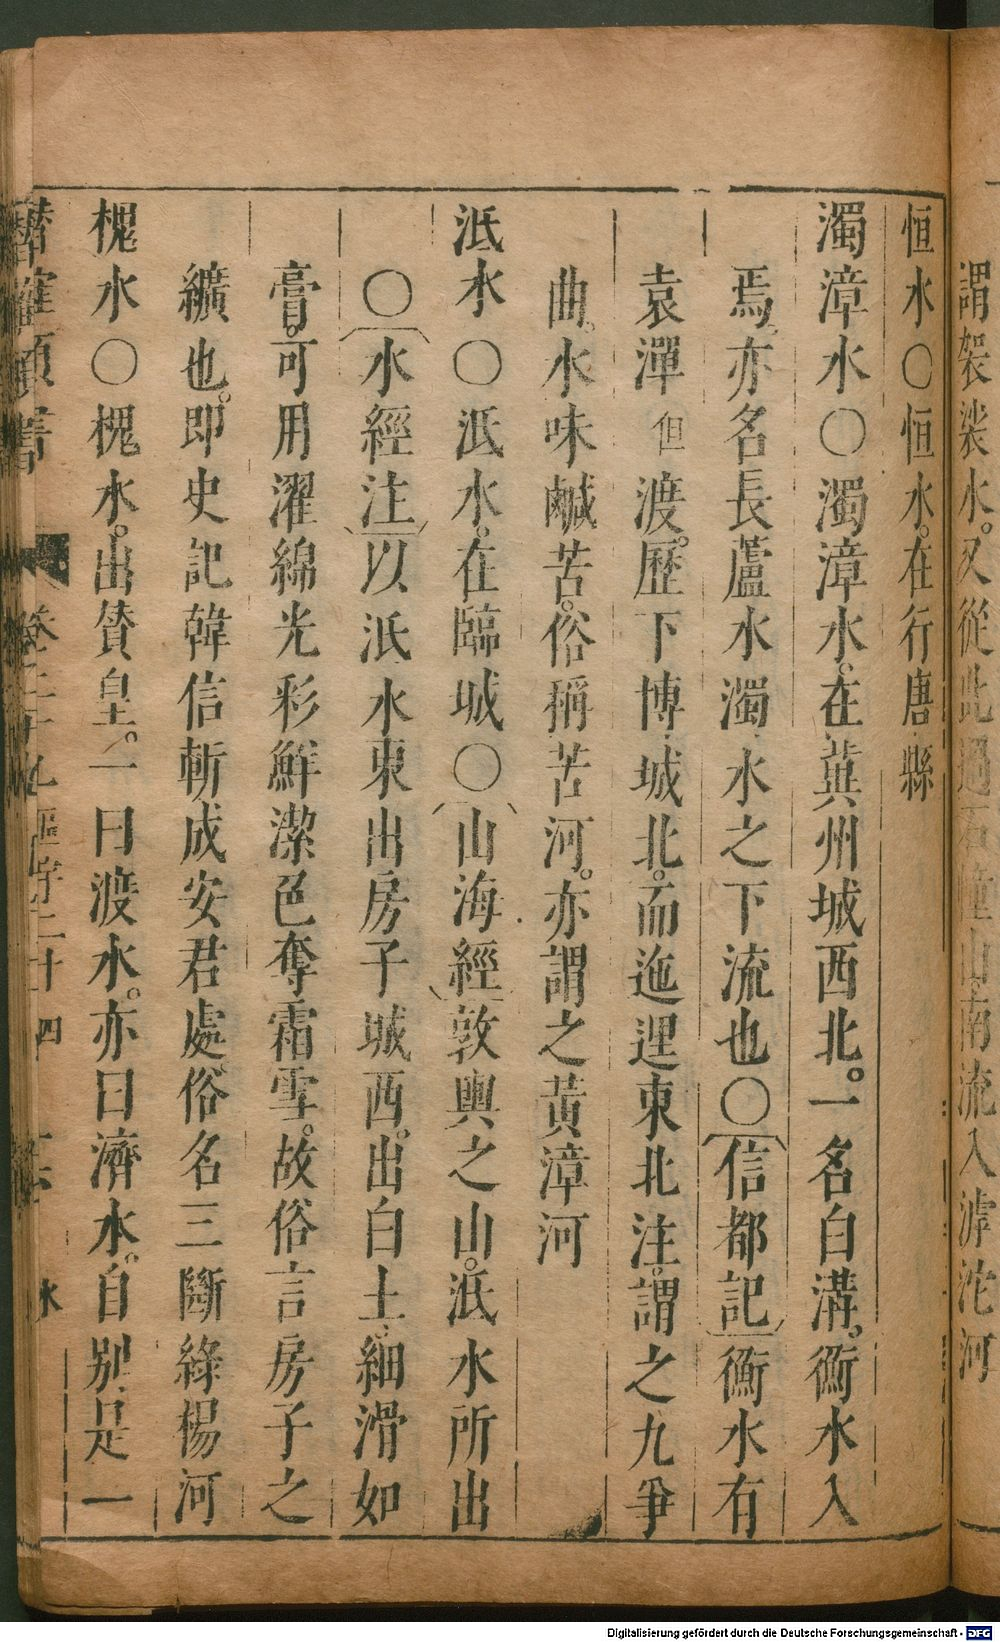 謂袈裟水。又從此過石 山南流入滹沱河
恒水〇恒水。在行唐縣
濁漳水〇濁漳水。在兾州城西北。一名白溝。衡水入
焉。亦名長蘆水濁水之下流也〇信都記衡水有
袁潭但渡。歷下博城北。而迤逕東北注。謂之九爭
曲。水味鹹苦。俗稱苦河。亦謂之黃漳河
泜水〇泜水。在臨城〇山海經敦輿之山。泜水所出
〇水經注以泜水東出房子城西。出白土。細滑如
膏。可用濯綿光彩鮮潔色奪霜雪。故俗言房子之
纊也。即史記韓信斬成安君處。俗名三斷綠楊河
槐水〇槐水。出贊皇。一曰渡水。亦曰濟水。自别是一
潛確類書 卷二十九區宇二十四 水
Digitalisierung gefördert durch die Deutsche Forschungsgemeinschaft - DFG